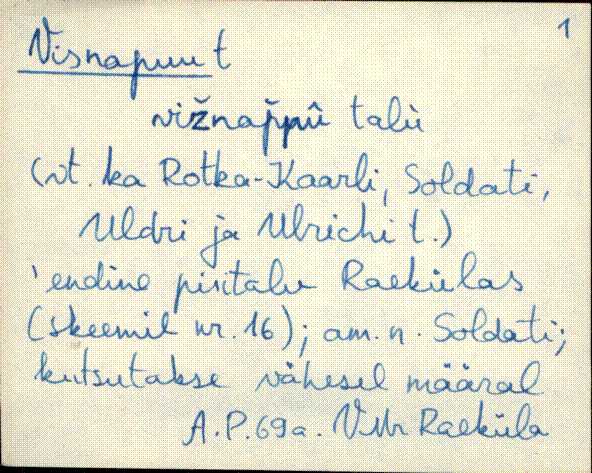 1
Visnapuu t
vižnap̆pû talù
(vt. ka Rotka-Kaarli, Soldati,
Uldri ja Ulrichi t.)
'endine piiritalu Raekülas
(skeemil nr. 16); am. n. Soldati;
kutsutakse vähesel määral
A.P. 69a. VMr Raeküla